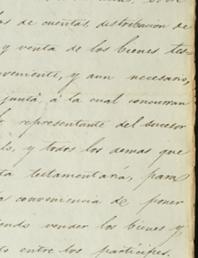 as de cuentas, distribucion de
y venta de los bienes tes
ovemente, y aun necesario,
junta á la cual concurran
representante del sucesor
y todos los demas que
ta testamentaria, para
conveniencia de poner
endo vender los bienes y
entre los partícipes.